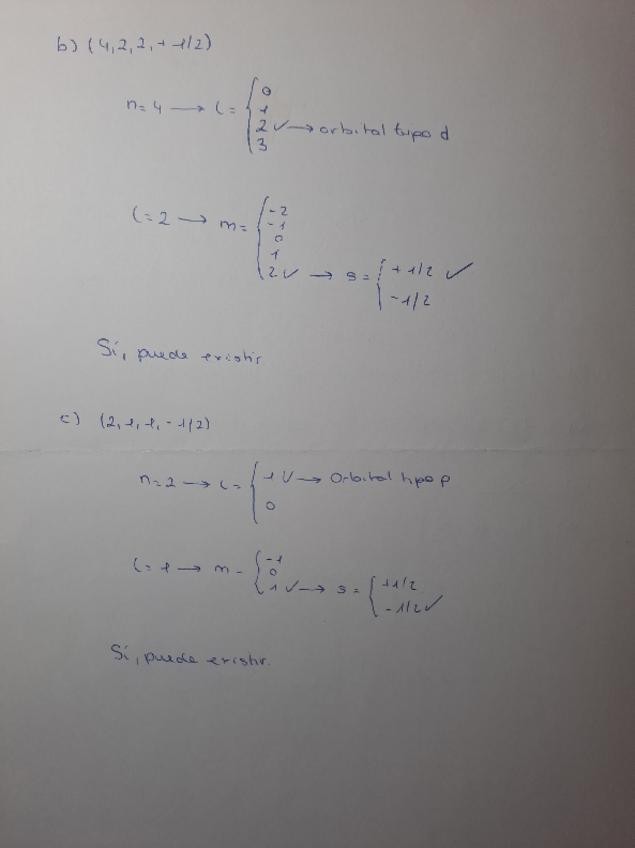 b) (4, 2, 2, + 1/2)
0
n = 4 → l = 1
2 ✓ → orbital tipo d
3
-2
l = 2 → m = -1
0
1
2 ✓ → s = + 1/2 ✓
- 1/2
Sí, puede existir
c) (2, 1, 1, - 1/2)
n = 2 → l = 1 ✓ → Orbital tipo p
0
-1
l = 1 → m = 0
1 ✓ → s = +1/2
- 1/2 ✓
Sí, puede existir.